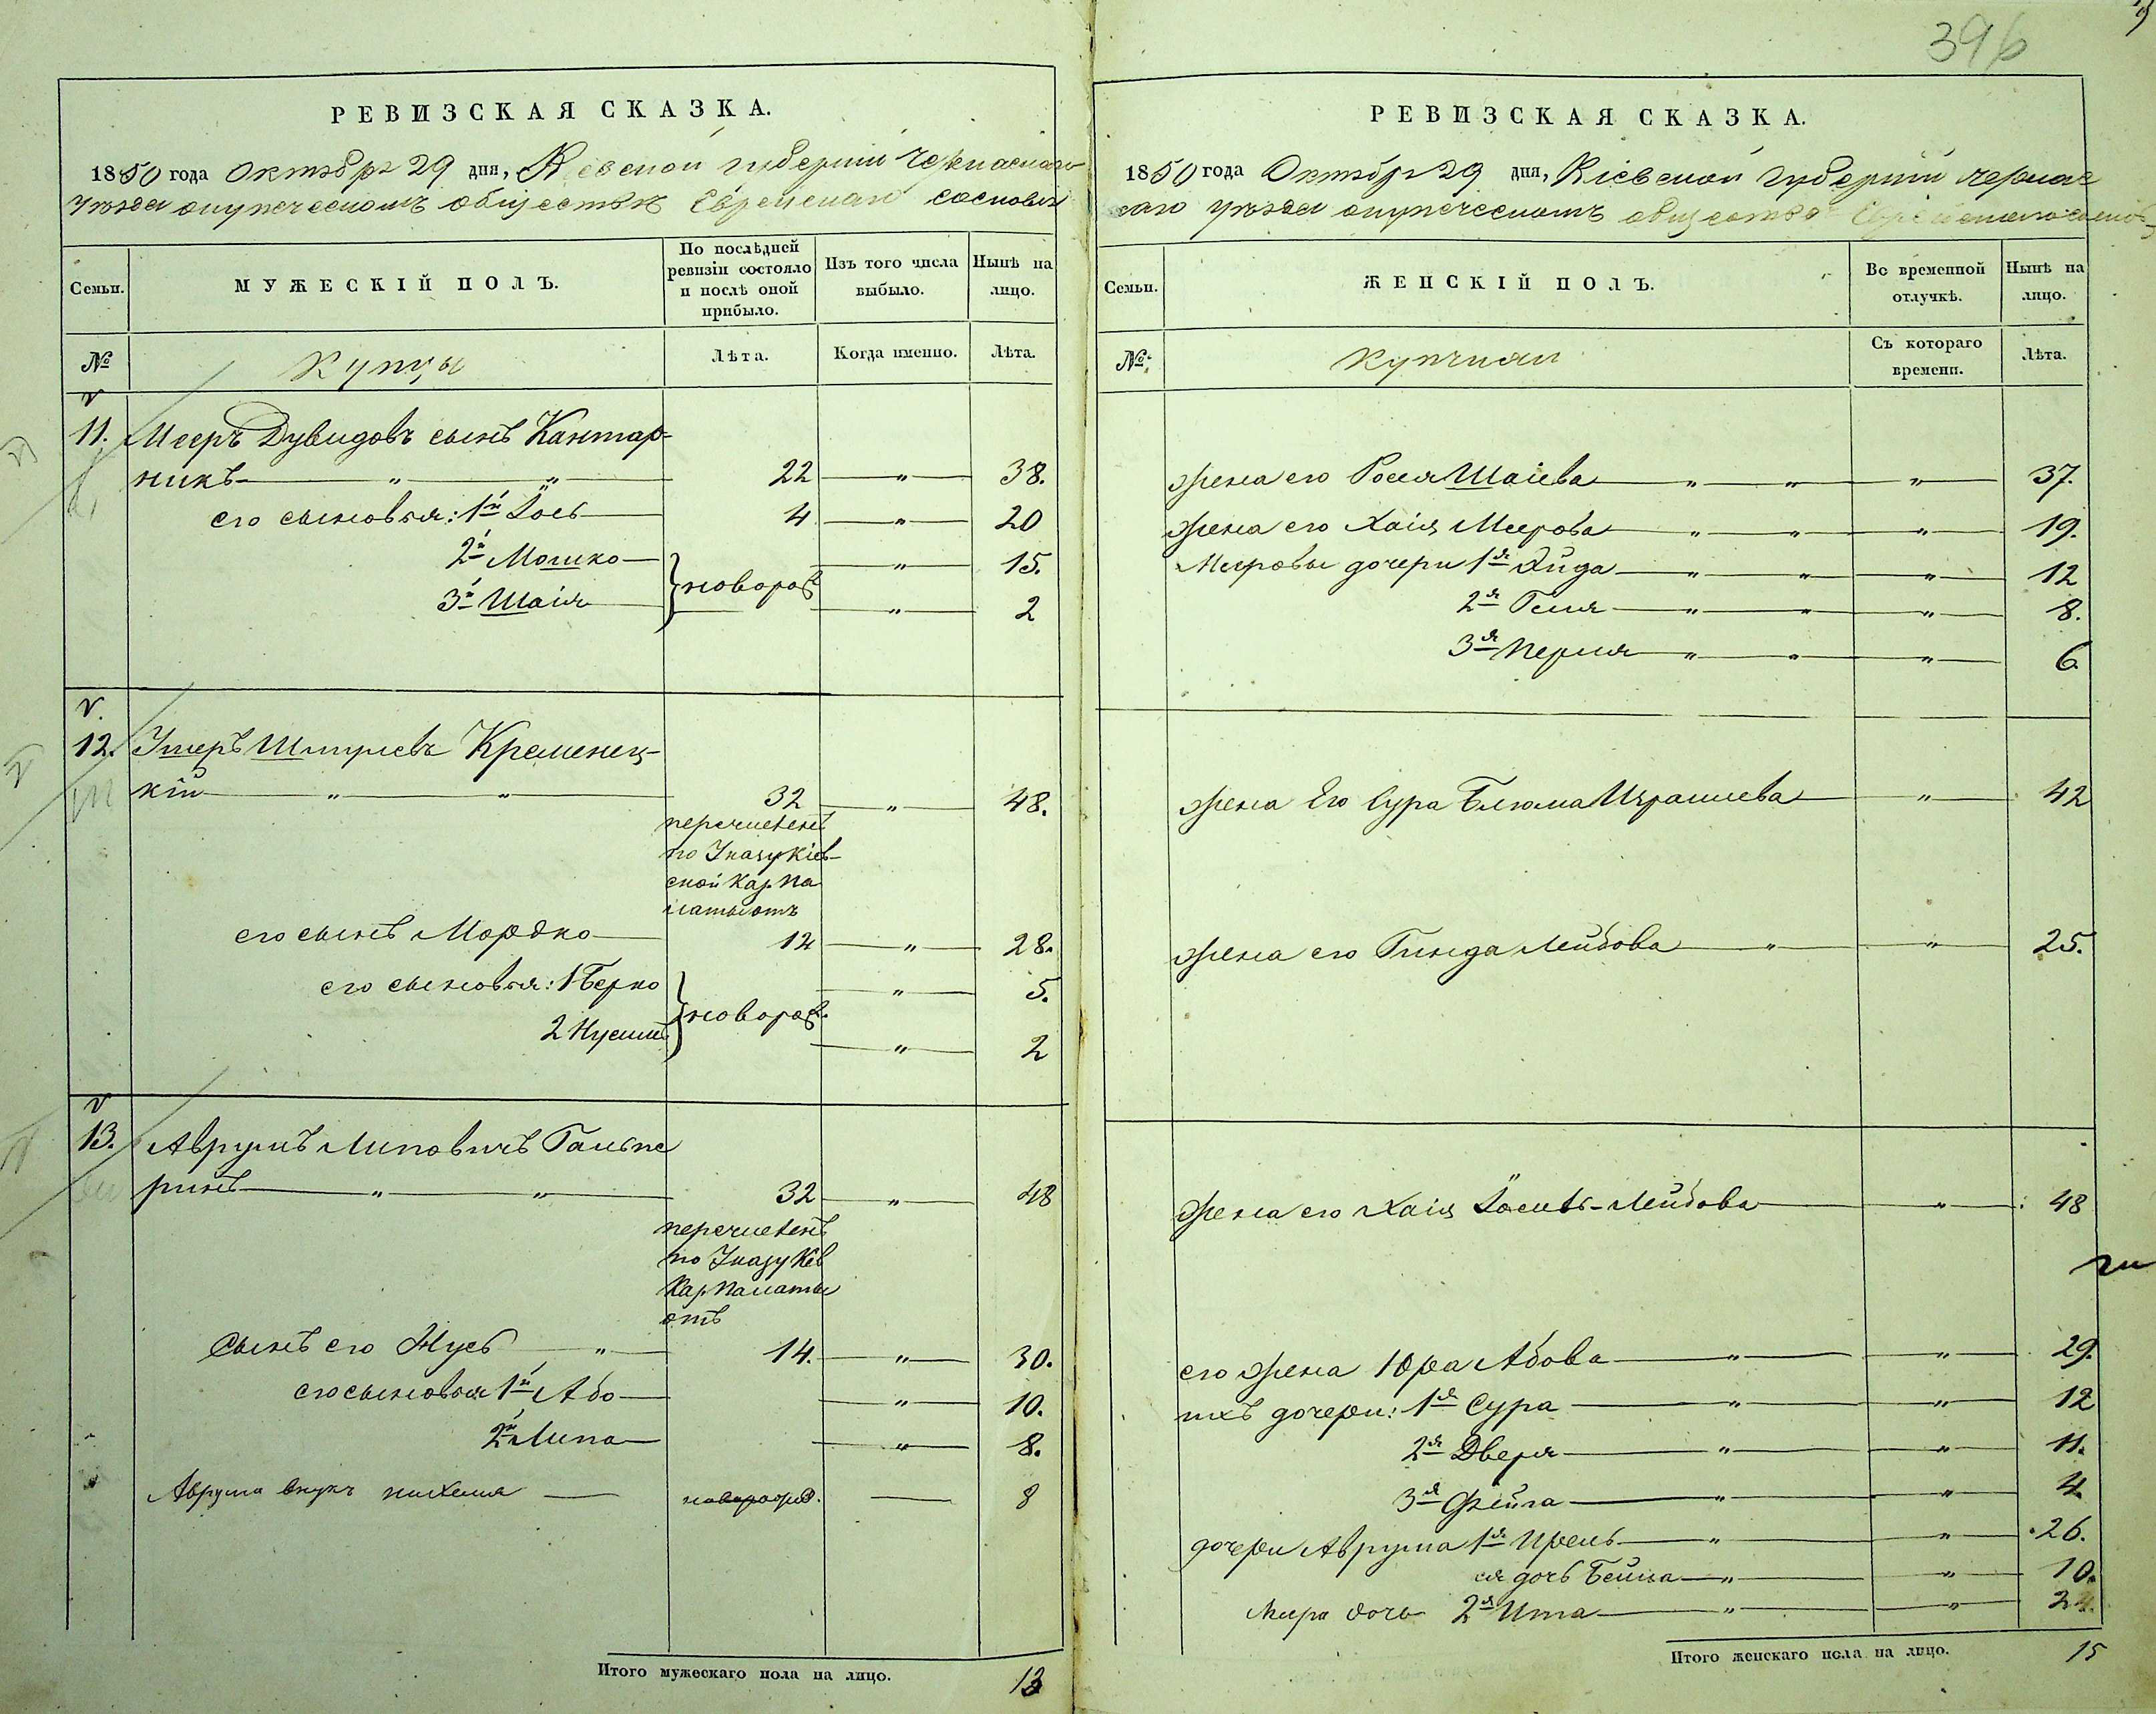 396
РЕВИЗСКАЯ СКАЗКА.
1850 года Октября 29 дня, Кіевской губерніи Черкаскаго
уѣзда о купеческомъ обществѣ Еврейскаго
Семьи.
МУЖЕСКІЙ ПОЛЪ.
По послѣдней ревизіи состояло и послѣ оной прибыло.
Изъ того числа выбыло.
Нынѣ на лицо.
№
Купцы
Лѣта.
Когда именно.
Лѣта.
11. Мееръ Дувидовъ сынъ Кантар-
никъ — " — " — 22 — " — 38.
его сыновья: 1й Іось — 4 — " — 20
2й Мошко — новорож — " — 15.
3й Шаія — " — 2
12. Ушеръ Шмулевъ Кременец-
кій — " — " — 32 — " — 48.
перечисленъ
по Указу Кіев-
ской Каз. Па
латы отъ
его сынъ Мордко — 12 — " — 28.
его сыновья: 1 Берко — " — 5.
новорож.
2 Нусинъ — " — 2
13. Аврумъ Липовичъ Гальпе
ринъ — " — " — 32 — " — 48
перечисленъ
по Указу Кіев
Каз Палаты
отъ
Сынъ его Нусь — " — 14. — " — 30.
его сыновья 1й Або — " — 10.
2й Липа — " — 8.
Аврума внукъ — новорожд. — 8
Итого мужескаго пола на лицо. 13
РЕВИЗСКАЯ СКАЗКА.
1850 года Октября 29 дня, Кіевской Губерніи Черкас
каго уѣзда о купеческомъ обществѣ
Семьи.
ЖЕНСКІЙ ПОЛЪ.
Во временной отлучкѣ.
Нынѣ на лицо.
№.
Купчихи
Съ котораго времени.
Лѣта.
жена его Рося Шаіева — " — " — " — 37.
жена его Хаія Меерова — " — " — " — 19.
Мееровы дочери 1я Хйда — " — " — " — 12
2я Геня — " — " — " — 8.
3я Перля — " — " — " — 6
жена Его Сура Блюма Израилева — " — 42
жена его Гинда Лейбова — " — " — 25.
жена его Хаія Іосель-Лейбова — " — 48
его жена Абова — " — " — 29.
ихъ дочери: 1я Сура — " — " — 12
2я Двера — " — " — 11.
3я Фейга — " — " — 4.
дочери Аврума 1я — " — " — 26.
ея дочь Бейла — " — " — 10.
дочь 2я Ита — " — " — 24.
Итого женскаго пола на лицо. 15